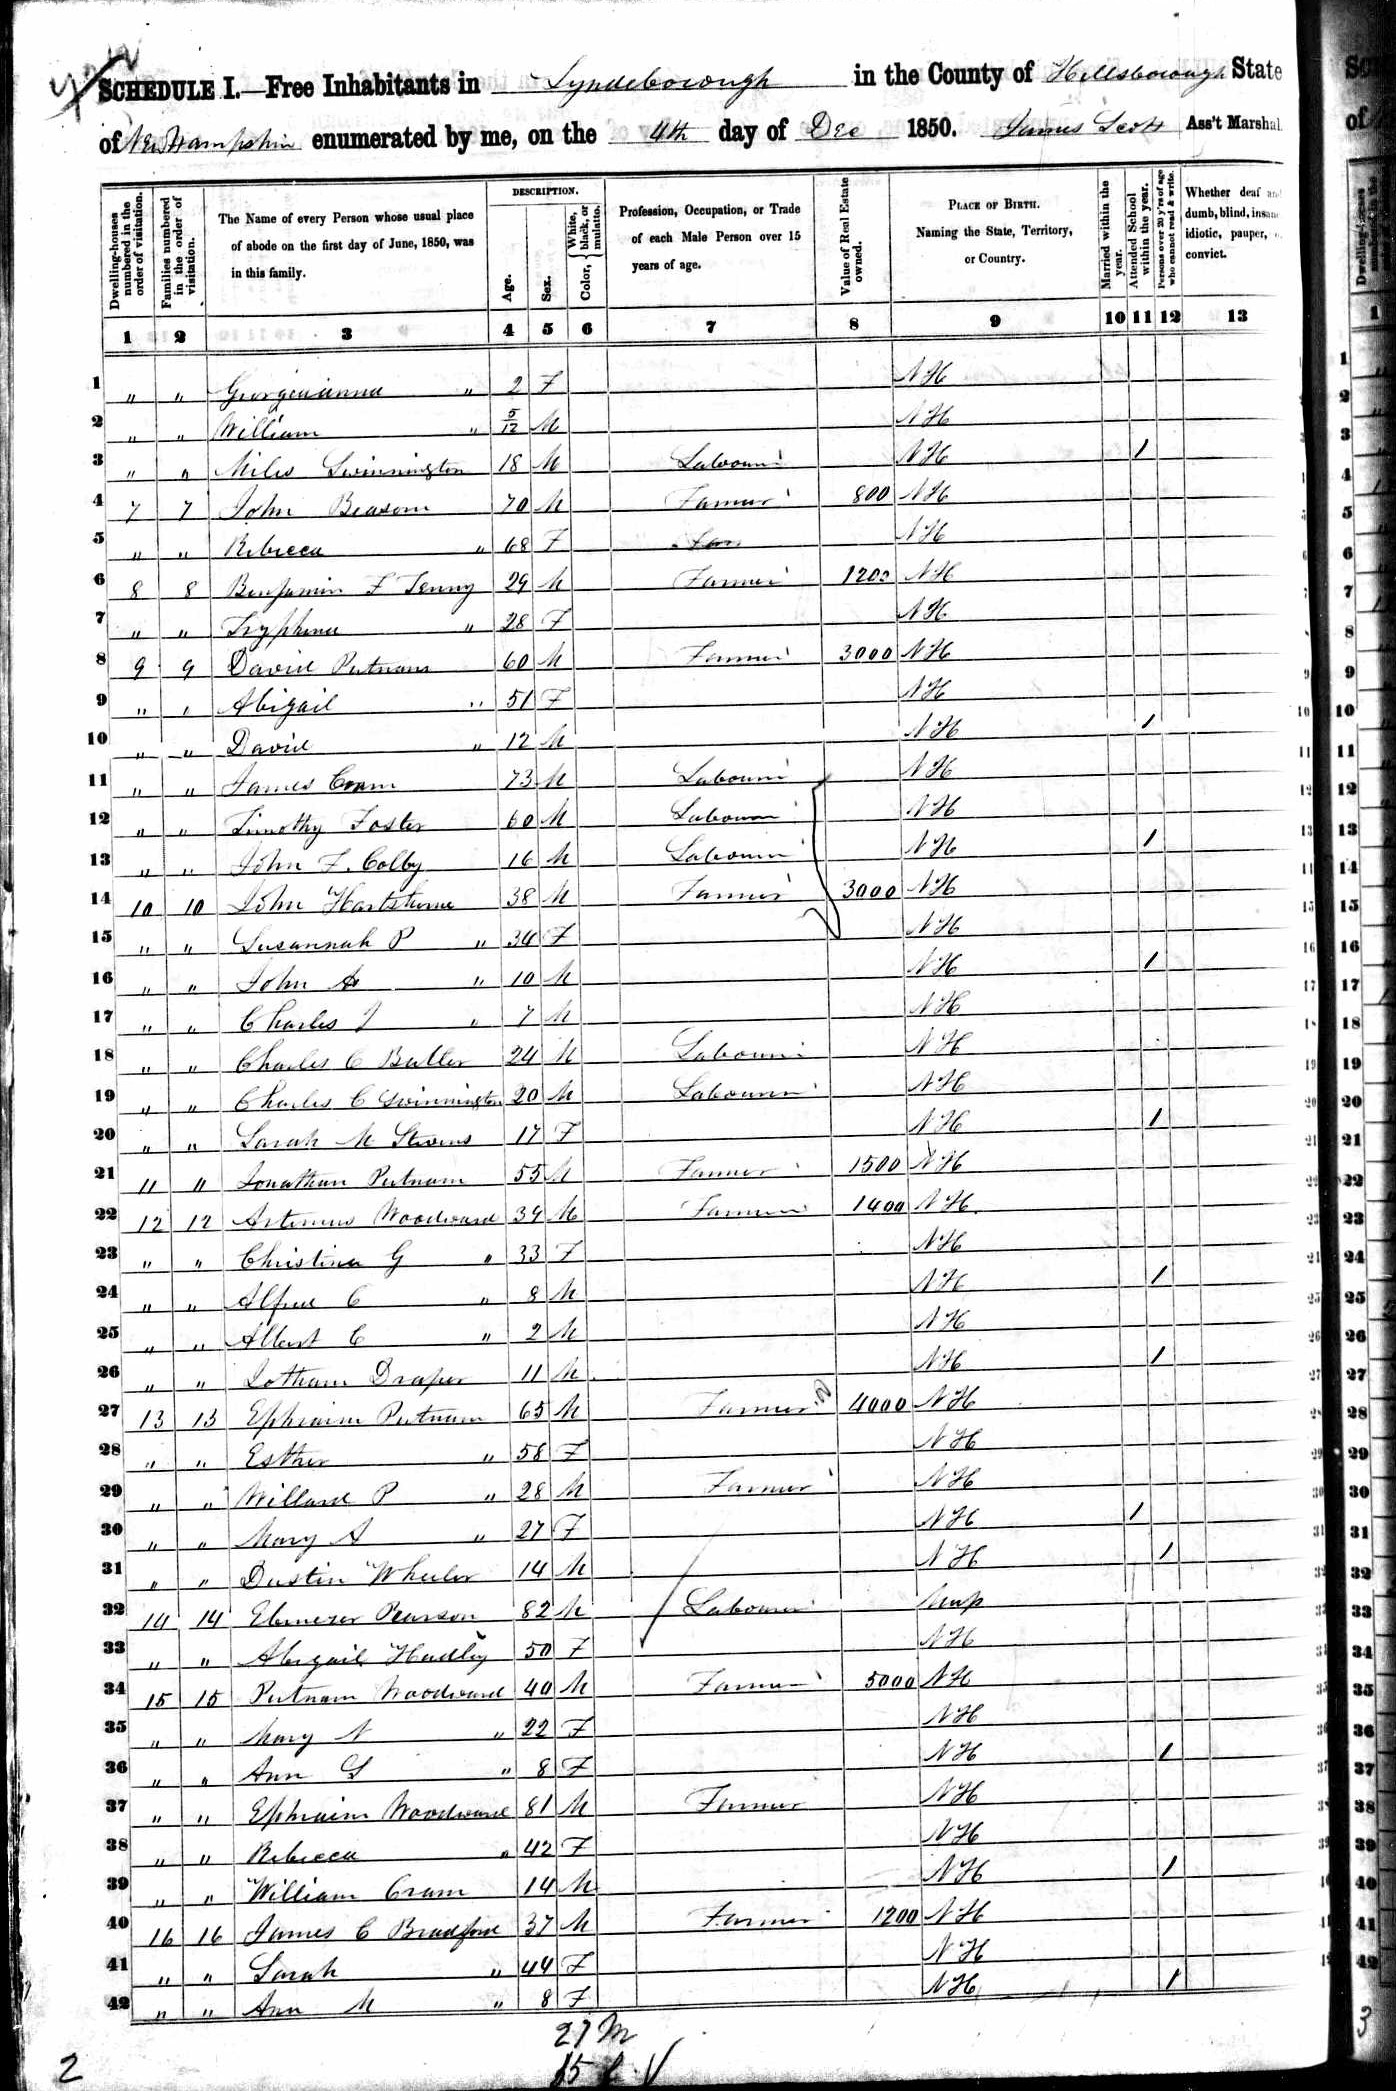 SCHEDULE I.—Free Inhabitants in Lyndeborough in the County of Hillsborough State
of New Hampshire enumerated by me, on the 4th day of Dec 1850. James Scott Ass't Marshal
Dwelling-houses numbered in the order of visitation.
Families numbered in the order of visitation.
The Name of every Person whose usual place of abode on the first day of June, 1850, was in this family.
DESCRIPTION.
Age.
Sex.
Color, { White, black, or mulatto.
Profession, Occupation, or Trade of each Male Person over 15 years of age.
Value of Real Estate owned.
PLACE OF BIRTH.
Naming the State, Territory, or Country.
Married within the year.
Attended School within the year.
Persons over 20 y'rs of age who cannot read & write.
Whether deaf and dumb, blind, insane idiotic, pauper, convict.
1 2 3 4 5 6 7 8 9 10 11 12 13
1 " " Georgeanna " 2 F NH
2 " " William " 5/12 M NH
3 " " Miles Swinnington 18 M Labourer NH 1
4 7 7 John Beasom 70 M Farmer 800 NH
5 " " Rebecca " 68 F NH
6 8 8 Benjamin F Tenny 29 M Farmer 1200 NH
7 " " Tryphena " 28 F NH
8 9 9 David Putnam 60 M Farmer 3000 NH
9 " " Abigail " 51 F NH
10 " " David " 12 M NH 1
11 " " James Cram 73 M Labourer NH
12 " " Timothy Foster 60 M Labourer NH
13 " " John F. Colby 16 M Labourer NH 1
14 10 10 John Hartshorne 38 M Farmer 3000 NH
15 " " Susannah P " 34 F NH
16 " " John A " 10 M NH 1
17 " " Charles J " 7 M NH
18 " " Charles C Butler 24 M Labourer NH
19 " " Charles C Swinnington 20 M Labourer NH
20 " " Sarah M Stevens 17 F NH 1
21 11 11 Jonathan Putnam 55 M Farmer 1500 NH
22 12 12 Artemus Woodward 39 M Farmer 1400 NH.
23 " " Christina G " 33 F NH
24 " " Alfred C " 8 M NH 1
25 " " Albert C " 2 M NH
26 " " Jotham Draper 11 M NH 1
27 13 13 Ephraim Putnam 65 M Farmer 4000 NH
28 " " Esther " 58 F NH
29 " " Willard P " 28 M Farmer NH
30 " " Mary A " 27 F NH 1
31 " " Dustin Wheeler 14 M NH 1
32 14 14 Ebenezer Pearson 82 M Labourer
33 " " Abigail Hadley 50 F NH
34 15 15 Putnam Woodward 40 M Farmer 5000 NH
35 " " Mary N " 22 F NH
36 " " Ann " 8 F NH 1
37 " " Ephraim Woodward 81 M Farmer NH
38 " " Rebecca " 42 F NH
39 " " William Cram 14 M NH 1
40 16 16 James C Bradford 37 M Farmer 1200 NH
41 " " Sarah " 44 F NH
42 " " Ann M " 8 F NH 1
27 M
15 f
2
3